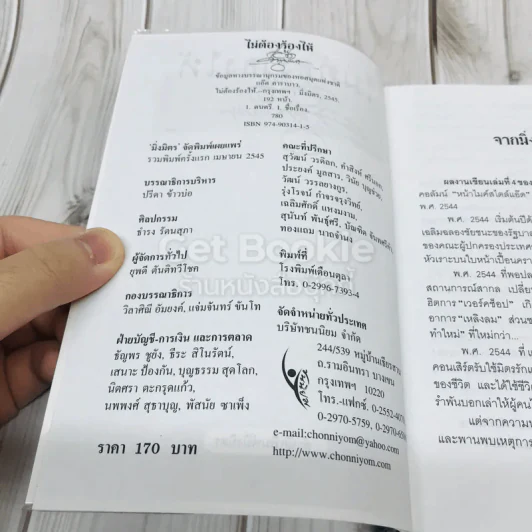 ไม่ต้องร้องไห้
ข้อมูลทางบรรณานุกรมของหอสมุดแห่งชาติ
แอ๊ด คาราบาว.
ไม่ต้องร้องไห้.--กรุงเทพฯ : มิ่งมิตร, 2545.
192 หน้า.
1. ดนตรี. I. ชื่อเรื่อง.
780
ISBN 974-90514-1-5
'มิ่งมิตร' จัดพิมพ์เผยแพร่
รวมพิมพ์ครั้งแรก เมษายน 2545
บรรณาธิการบริหาร
ปรีดา ข้าวบ่อ
ศิลปกรรม
ธำรง รัตนสุภา
ผู้จัดการทั่วไป
ยุพดี ตันติทวีโชค
กองบรรณาธิการ
วิลาศิณี อัมยงค์, แจ่มจันทร์ ขันโท
ฝ่ายบัญชี-การเงิน และการตลาด
ธัญพร ชูยัง, ธีระ สิโนรัตน์,
เสนาะ ป้องกัน, บุญธรรม สุดโลก,
นิตศรา ตะกรุดแก้ว,
นพพงศ์ สุธาบุญ, พัสนัย ซาเพ็ง
ราคา 170 บาท
คณะที่ปรึกษา
สุวัฒน์ วรดิลก, คำสิงห์
ประยงค์ มูลสาร, วินัย
วัฒน์ วรรลยางกูร,
รุ่งโรจน์ กำจรจรุงวิทย์,
เฉลิมศักดิ์ แหงมงาม,
สุนันท์ พันธุ์ศรี, บัณฑิต
ทองแถม นาถจำนง
พิมพ์ที่
โรงพิมพ์เดือนตุลา
โทร. 0-2996-7393-4
จัดจำหน่ายทั่วประเทศ
บริษัทชนนิยม จำกัด
244/539 หมู่บ้าน
ถ.รามอินทรา บางเขน
กรุงเทพฯ 10220
โทร.-แฟกซ์. 0-2552-
0-2970-5759, 0-2970-
e-mail:chonniyom@yahoo.com
http://www.chonniyom.com
จากมิ่ง
ผลงานเขียนเล่มที่ 4 ของ
คอลัมน์ "หน้าไมค์สไตล์แอ๊ด"
พ.ศ. 2544
พ.ศ. 2544 เริ่มต้นปี
เฉลิมฉลองชัยชนะของรัฐบาล
ของคณะผู้ปกครองประเทศ
หัวเราะบนใบหน้าเปื้อน
พ.ศ. 2544 ที่พอ
สถานการณ์สากล เปลี่ย
ฮิตการ "เวอร์คช็อป" เกิ
อาการ "เหลิงลม" ส่วน
ทำใหม่" ที่ใหม่กว่า...
พ.ศ. 2544 ที่
คอนเสิร์ตขับใช้มิตรรัก
ของชีวิต และได้ใช้ชีวิต
รำพันบอกเล่าให้ผู้คน
แต่จากความ
และพานพบเหตุการ
Get Bookie
ร้านหนังสือลุงกี้